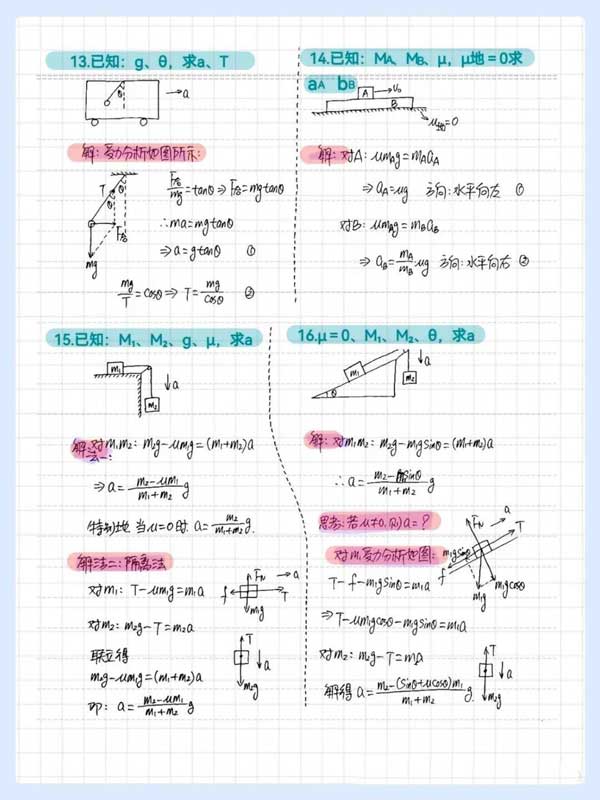 13.已知：g、θ，求a、T
θ
→a
解：受力分析如图所示：
T θ
θ
F合
mg
F合/mg=tanθ⇒F合=mgtanθ
∴ma=mgtanθ
⇒a=gtanθ ①
mg/T=cosθ⇒T=mg/cosθ ②
14.已知：MA、MB、μ，μ地=0求
aA bB
A →v₀
B
μ地=0
解：对A：μmAg=mAaA
⇒aA=μg 方向：水平向左 ①
对B：μmAg=mBaB
⇒aB=mA/mB μg 方向：水平向右 ②
15.已知：M₁、M₂、g、μ，求a
m₁
↓a
m₂
解法一：对m₁m₂：m₂g-μm₁g=(m₁+m₂)a
⇒a=m₂-μm₁/m₁+m₂ g
特别地，当μ=0时，a=m₂/m₁+m₂ g.
解法二：隔离法
对m₁：T-μm₁g=m₁a
FN →a
f T
m₁g
对m₂：m₂g-T=m₂a
T
↓a
m₂g
联立得
m₂g-μm₁g=(m₁+m₂)a
即：a=m₂-μm₁/m₁+m₂ g
16.μ=0、M₁、M₂、θ，求a
m₁
↓a
m₂
θ
解：对m₁m₂：m₂g-m₁gsinθ=(m₁+m₂)a
∴a=m₂-m₁sinθ/m₁+m₂ g
思考：若μ≠0，则a=？
对m₁受力分析如图：
a
FN T
m₁gsinθ
f
m₁g m₁gcosθ
T-f-m₁gsinθ=m₁a
⇒T-μm₁gcosθ-m₁gsinθ=m₁a
对m₂：m₂g-T=m₂a
T
↓a
m₂g
解得a=m₂-(sinθ+μcosθ)m₁/m₁+m₂ g.